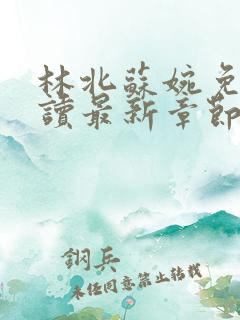 林北蘇婉免
讀最新章節
鋼兵
未經同意禁止轉載